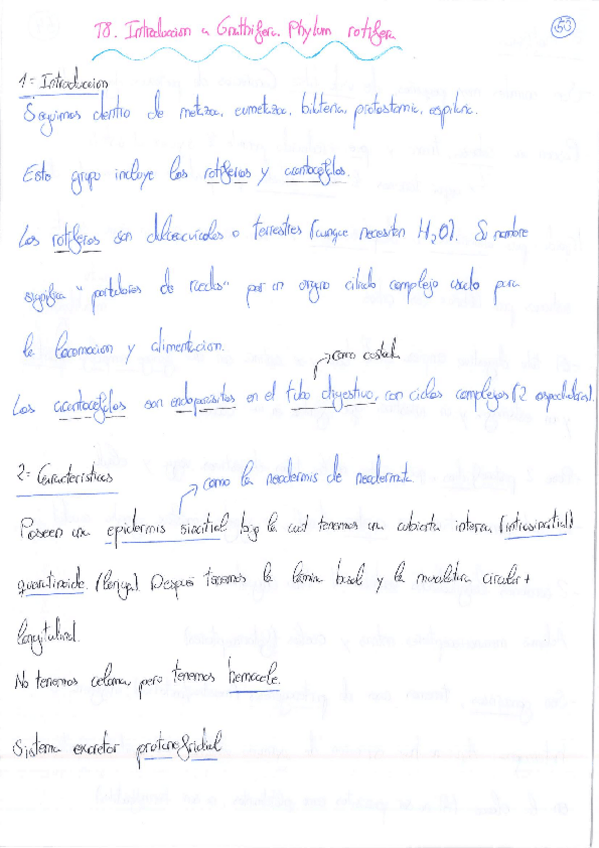 T8. Introduccion a Gnathifera. Phylum rotifera
53
1= Introduccion
Seguimos dentro de metazoa, eumetazoa, bilateria, protostomia, espiralia.
Este grupo incluye los rotiferos y acantocefalos.
Los rotiferos son dulceacuicolas o terrestres (aunque necesitan H2O). Su nombre
significa "portadores de ruedas" por un organo ciliado complejo usado para
la locomocion y alimentacion.
como
Los acantocefalos son endoparasitos en el tubo digestivo, con ciclos complejos (2 hospedadores).
2= Caracteristicas
como la neodermis de neodermata
Poseen una epidermis sincitial bajo la cual tenemos una cubierta interna (intrasincitial)
Despues tenemos la lamina basal y la musculatura circular +
longitudinal.
No tenemos celoma, pero tenemos hemocele.
Sistema excretor protonefridial